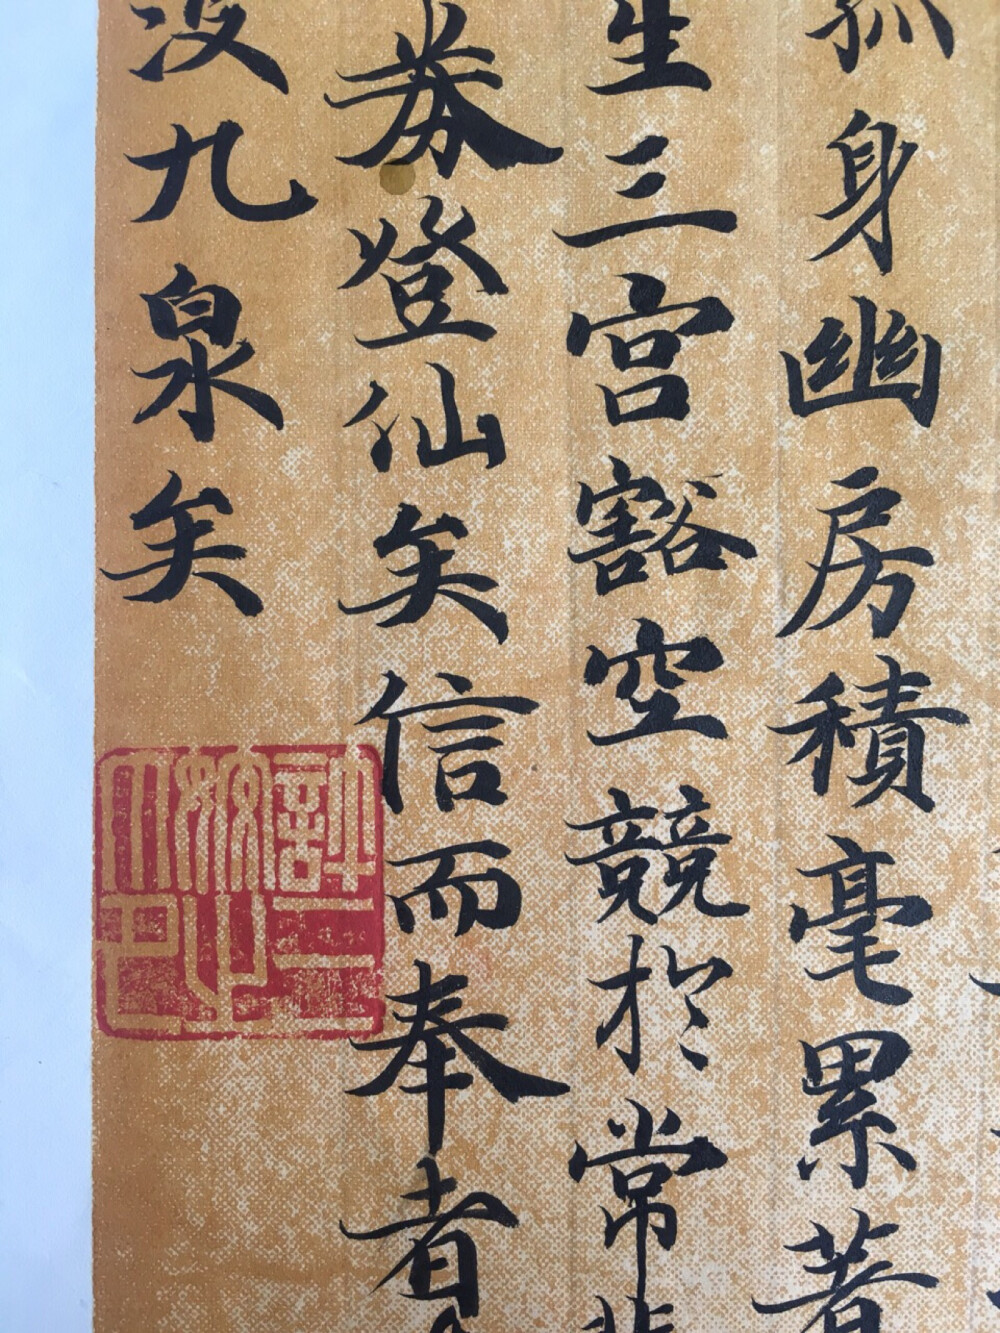 孤身幽房積毫累著
生三宮豁空競於常
券登仙矣信而奉者
没九泉矣